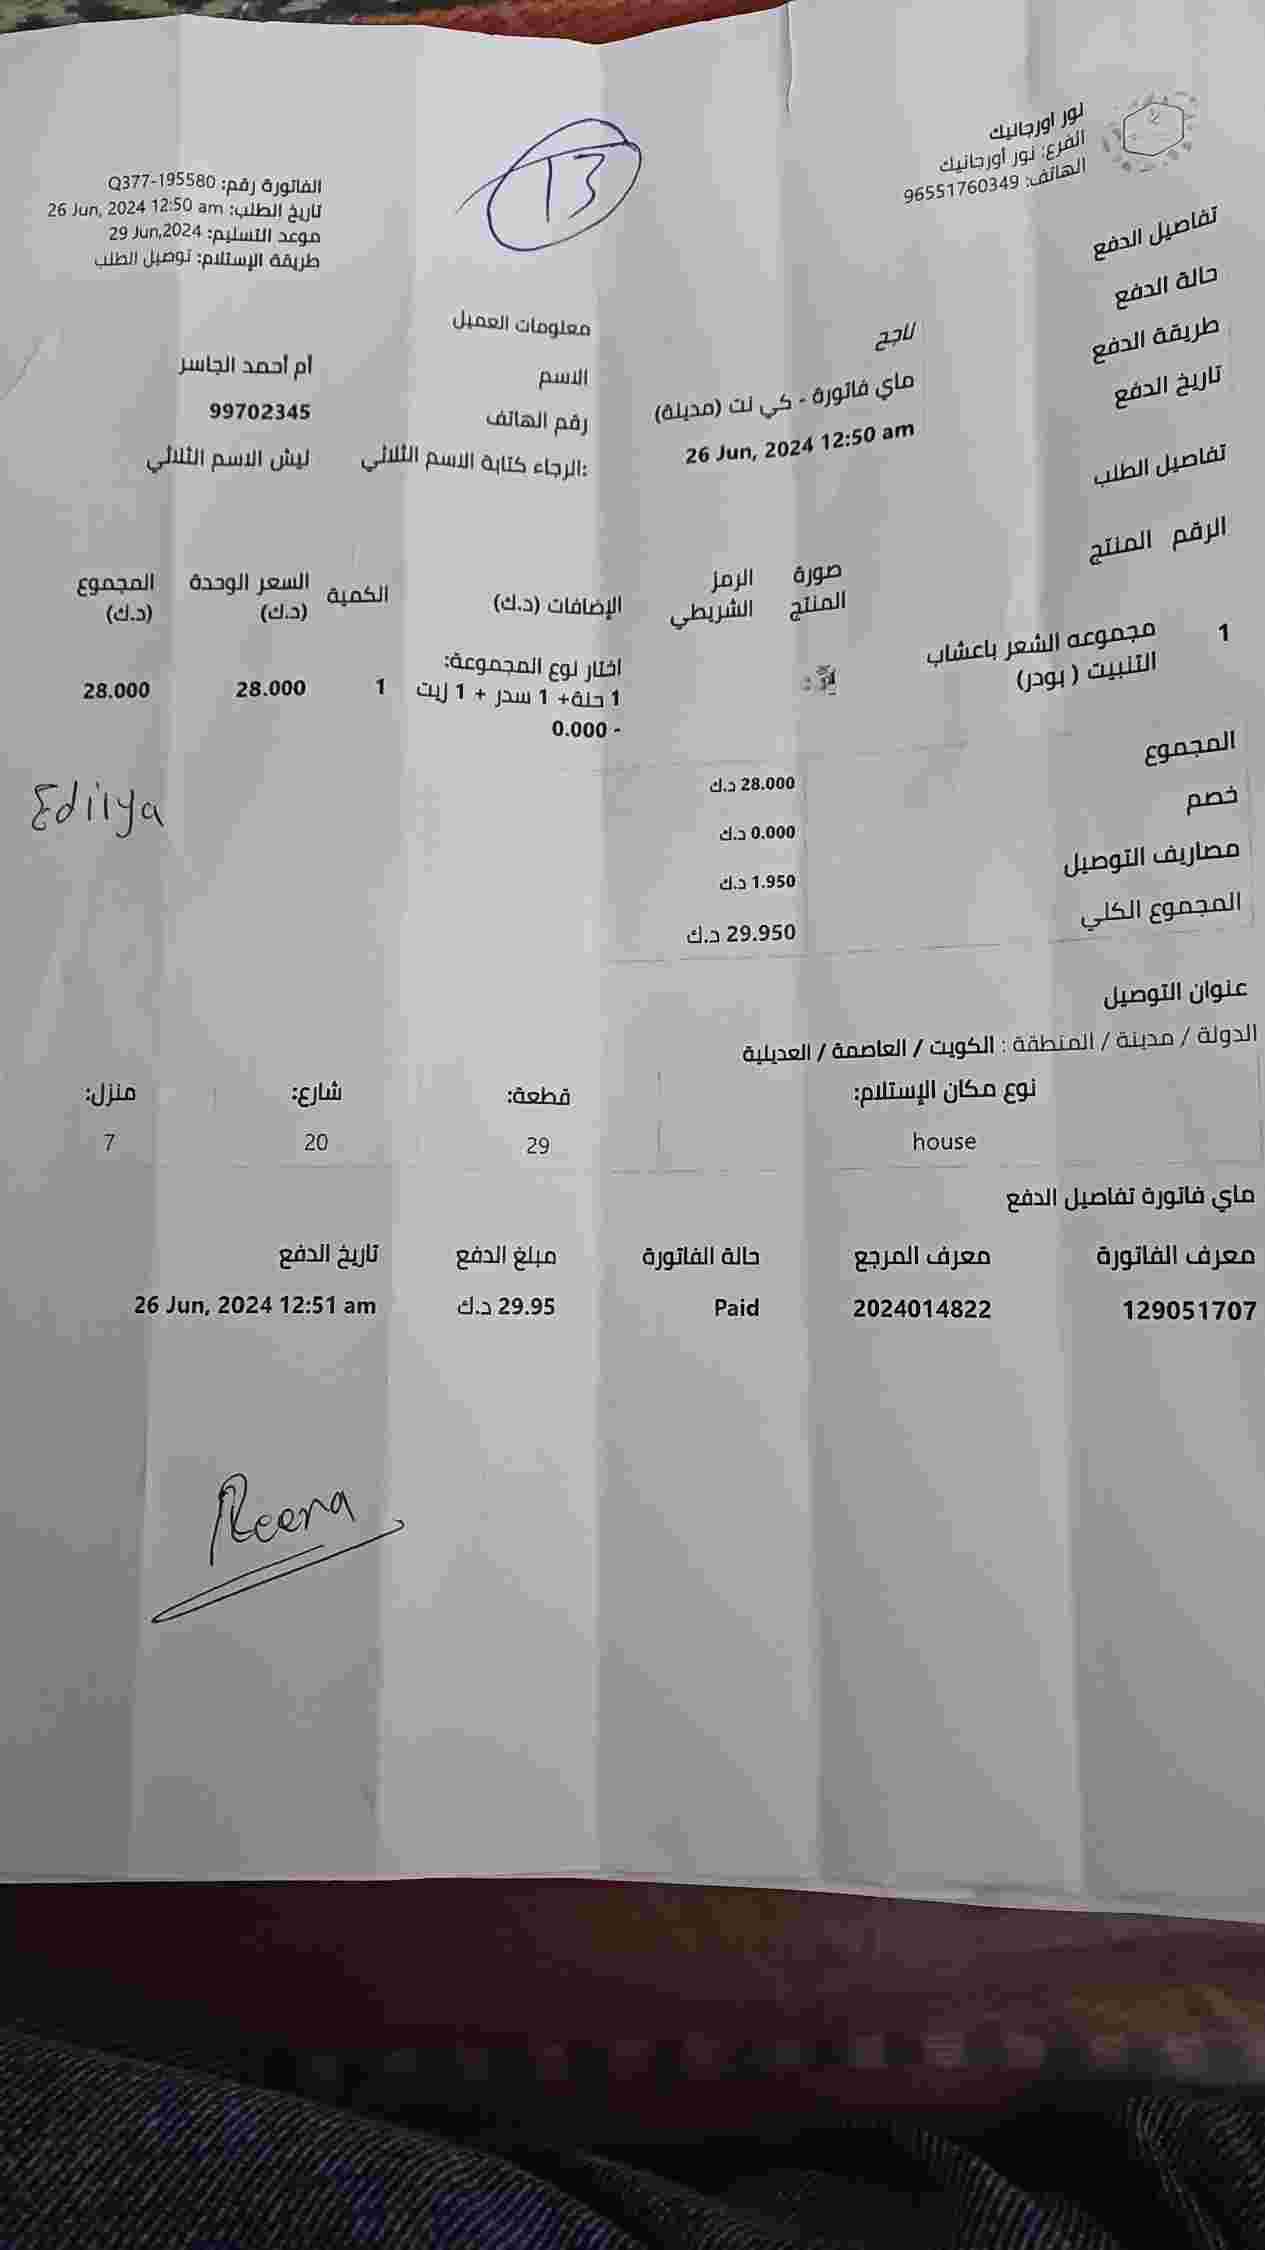 نور اورجانيك
الفرع: نور أورجانيك
الهاتف: 96551760349
13
الفاتورة رقم: Q377-195580
تاريخ الطلب: 26 Jun, 2024 12:50 am
موعد التسليم: 29 Jun,2024
طريقة الإستلام: توصيل الطلب
تفاصيل الدفع
حالة الدفع ناجح
طريقة الدفع ماي فاتورة - كي نت (مدينة)
تاريخ الدفع 26 Jun, 2024 12:50 am
معلومات العميل
الاسم أم أحمد الجاسر
رقم الهاتف 99702345
الرجاء كتابة الاسم الثلاثي: ليش الاسم الثلاثي
تفاصيل الطلب
الرقم المنتج صورة المنتج الرمز الشريطي الإضافات (د.ك) الكمية السعر الوحدة (د.ك) المجموع (د.ك)
1 مجموعه الشعر باعشاب اختار نوع المجموعة:
التنبيت ( بودر) 1 حنة+ 1 سدر + 1 زيت 1 28.000 28.000
- 0.000
المجموع 28.000 د.ك
خصم 0.000 د.ك
مصاريف التوصيل 1.950 د.ك
المجموع الكلي 29.950 د.ك
Ediiya
عنوان التوصيل
الدولة / مدينة / المنطقة : الكويت / العاصمة / العديلية
نوع مكان الإستلام: قطعة: شارع: منزل:
house 29 20 7
ماي فاتورة تفاصيل الدفع
معرف الفاتورة معرف المرجع حالة الفاتورة مبلغ الدفع تاريخ الدفع
129051707 2024014822 Paid 29.95 د.ك 26 Jun, 2024 12:51 am
Reena